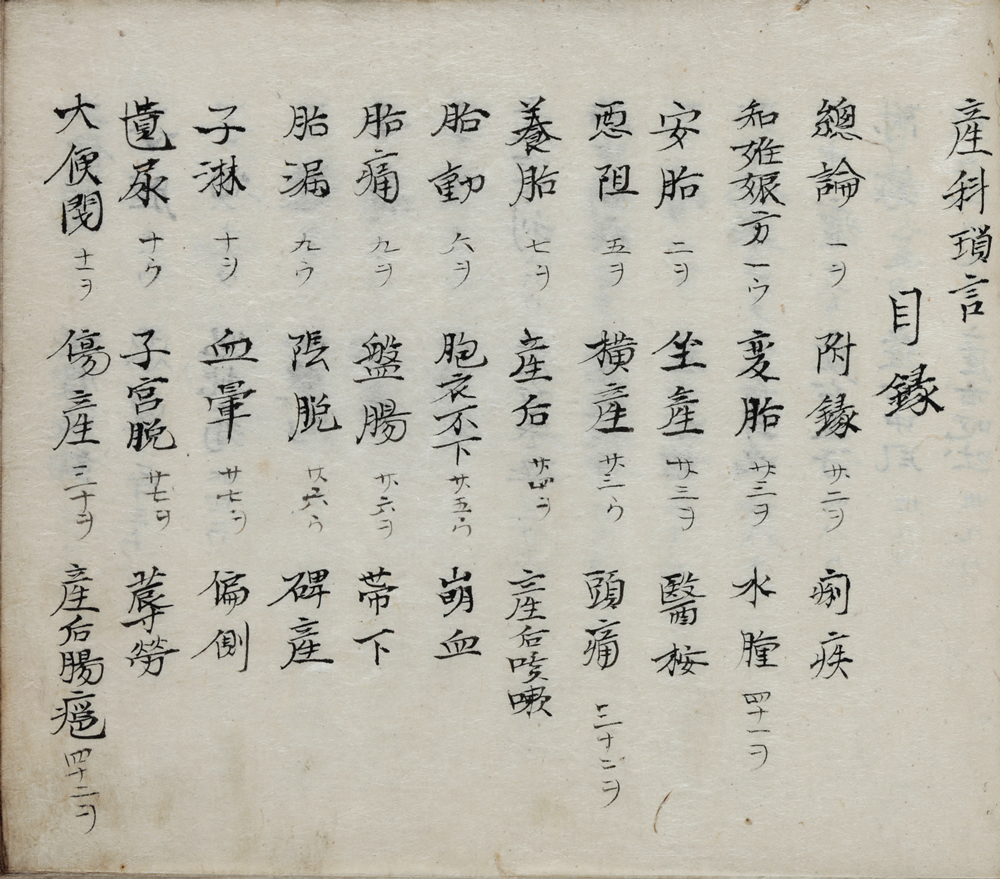 産科瑣言
目録
總論 一ヲ 附録 廿二ヲ 痢疾
知妊娠方 一ウ 変胎 廿三ヲ 水腫 四十一ヲ
安胎 二ヲ 坐産 廿三ヲ 醫桉
悪阻 五ヲ 横産 廿三ウ 頭痛 三十二ヲ
養胎 七ヲ 産后 廿四ヲ 産后咳嗽
胎動 六ヲ 胞衣不下 廿五ウ 崩血
胎痛 九ヲ 盤腸 廿六ヲ 帯下
胎漏 九ウ 陰脱 廿六ウ 碑産
子淋 十ヲ 血暈 廿七ヲ 偏側
遺尿 十ウ 子宮脱 廿七ヲ 蓐勞
大便閉 十一ヲ 傷産 三十ヲ 産后腸 四十二ヲ